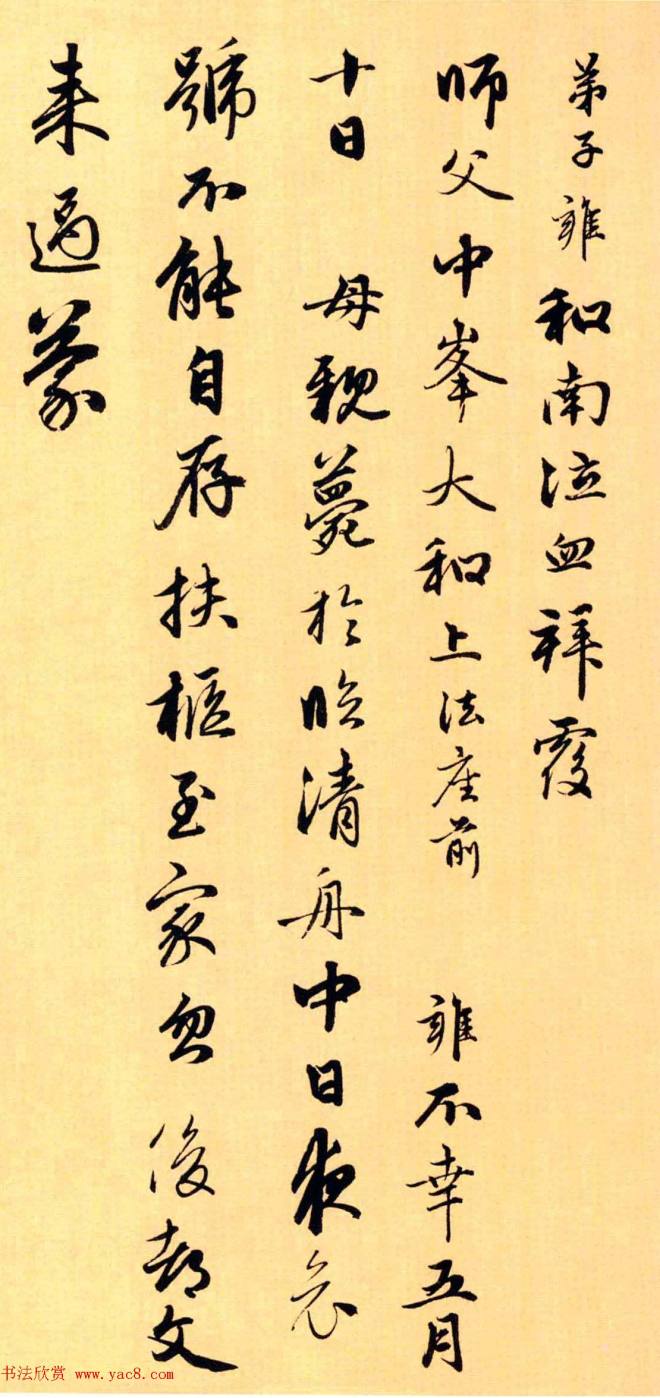 弟子雍和南泣血拜覆
師父中峯大和上法座前　雍不幸五月
十日　母親薨於臨清舟中日夜哀
號不能自存扶柩至家忽後都文
来過蒙
书法欣赏 www.yac8.com